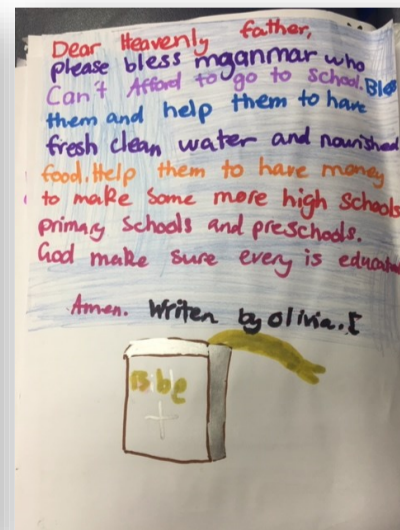 Dear Heavenly father,
please bless mganmar who
Can't Afford to go to school. Bles
them and help them to have
fresh clean water and nourished
food. Help them to have money
to make some more high schools
primary schools and preschools.
God make sure every is educated
Amen. Writen by Olivia. E
Bible